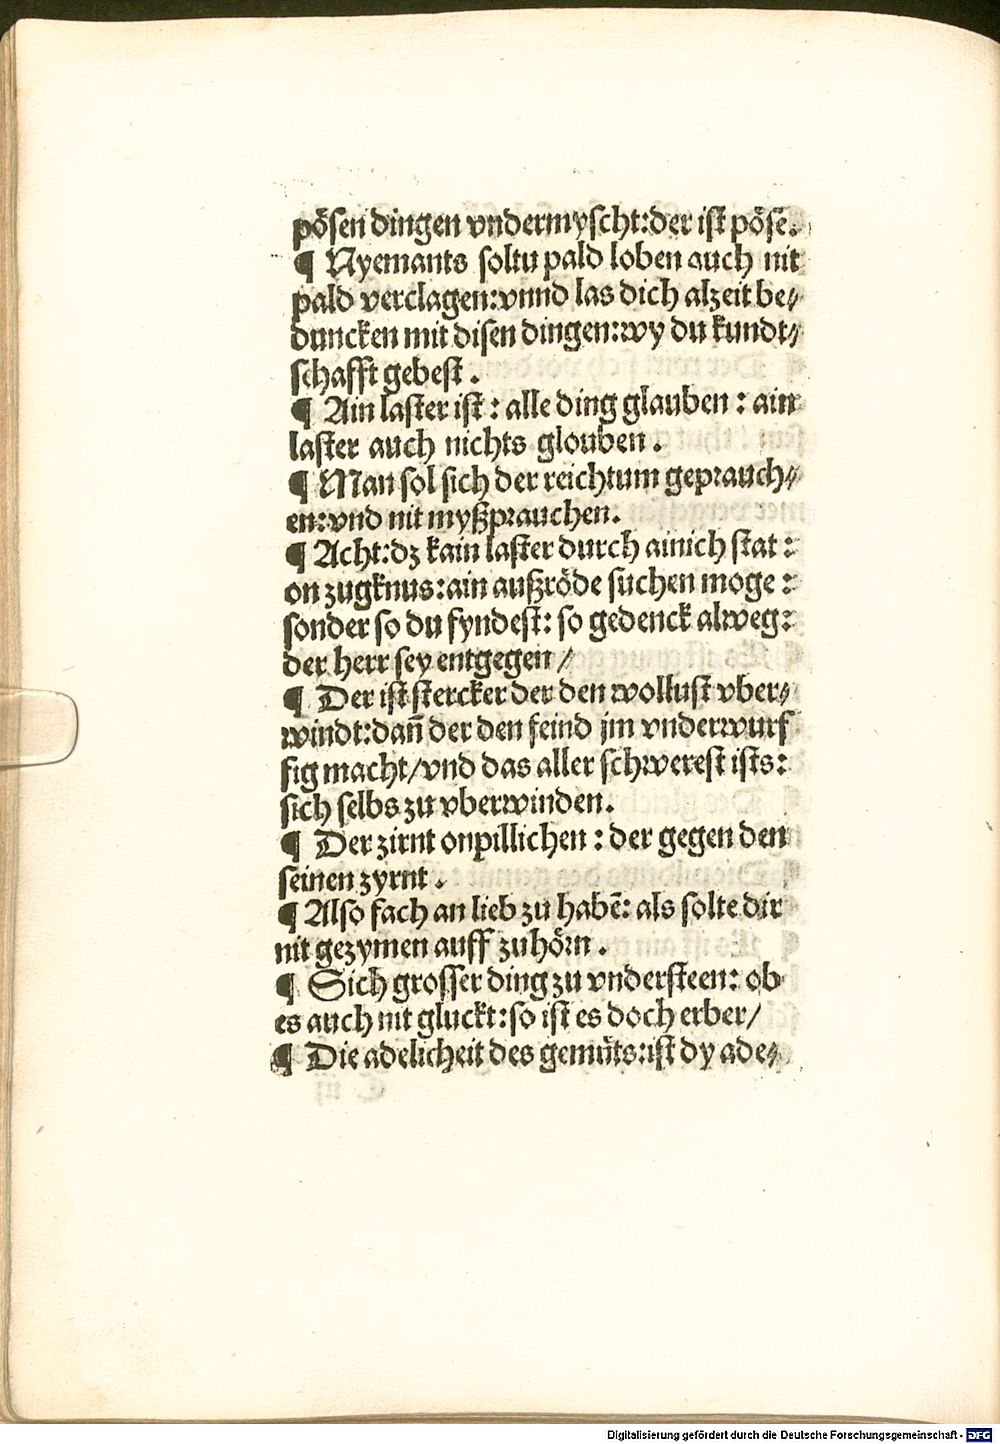 pösen dingen vndermyscht:der ist pöse.
¶ Nyemants soltu pald loben auch nit
pald verclagen:vnnd las dich alzeit be⸗
duncken mit disen dingen:wy du kundt⸗
schafft gebest.
¶ Ain laster ist: alle ding glauben: ain
laster auch nichts glouben.
¶ Man sol sich der reichtum geprauch⸗
en:vnd nit myßprauchen.
¶ Acht:dz kain laster durch ainich stat:
on zugknus:ain außröde suchen moge:
sonder so du fyndest: so gedenck alweg:
der herr sey entgegen /
¶ Der ist stercker der den wollust vber⸗
windt:dañ der den feind jm vnderwurf
fig macht/vnd das aller schwerest ists:
sich selbs zu vberwinden.
¶ Der zirnt onpillichen: der gegen den
seinen zyrnt.
¶ Also fach an lieb zu habē: als solte dir
nit gezymen auff zuhörn.
¶ Sich grosser ding zu vndersteen: ob
es auch nit gluckt:so ist es doch erber/
¶ Die adelicheit des gemüts:ist dy ade⸗
Digitalisierung gefördert durch die Deutsche Forschungsgemeinschaft - DFG